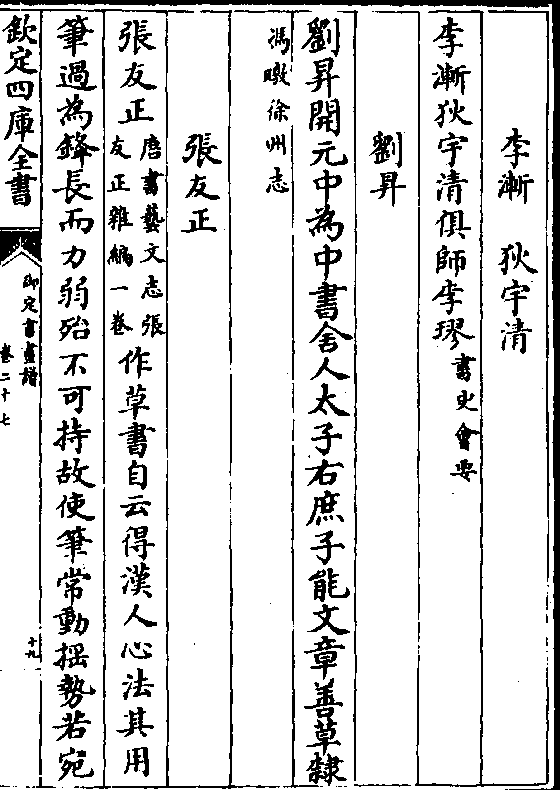 李漸　狄宇清
李漸狄宇清俱師李璆書史會要
劉昇
劉昇開元中為中書舍人太子右庶子能文章善草隸
馮暾徐州志
張友正
張友正唐書藝文志張友正雜編一卷作草書自云得漢人心法其用
筆過為鋒長而力弱殆不可持故使筆常動揺勢若宛
欽定四庫全書
御定書畫譜
卷二十七
十九